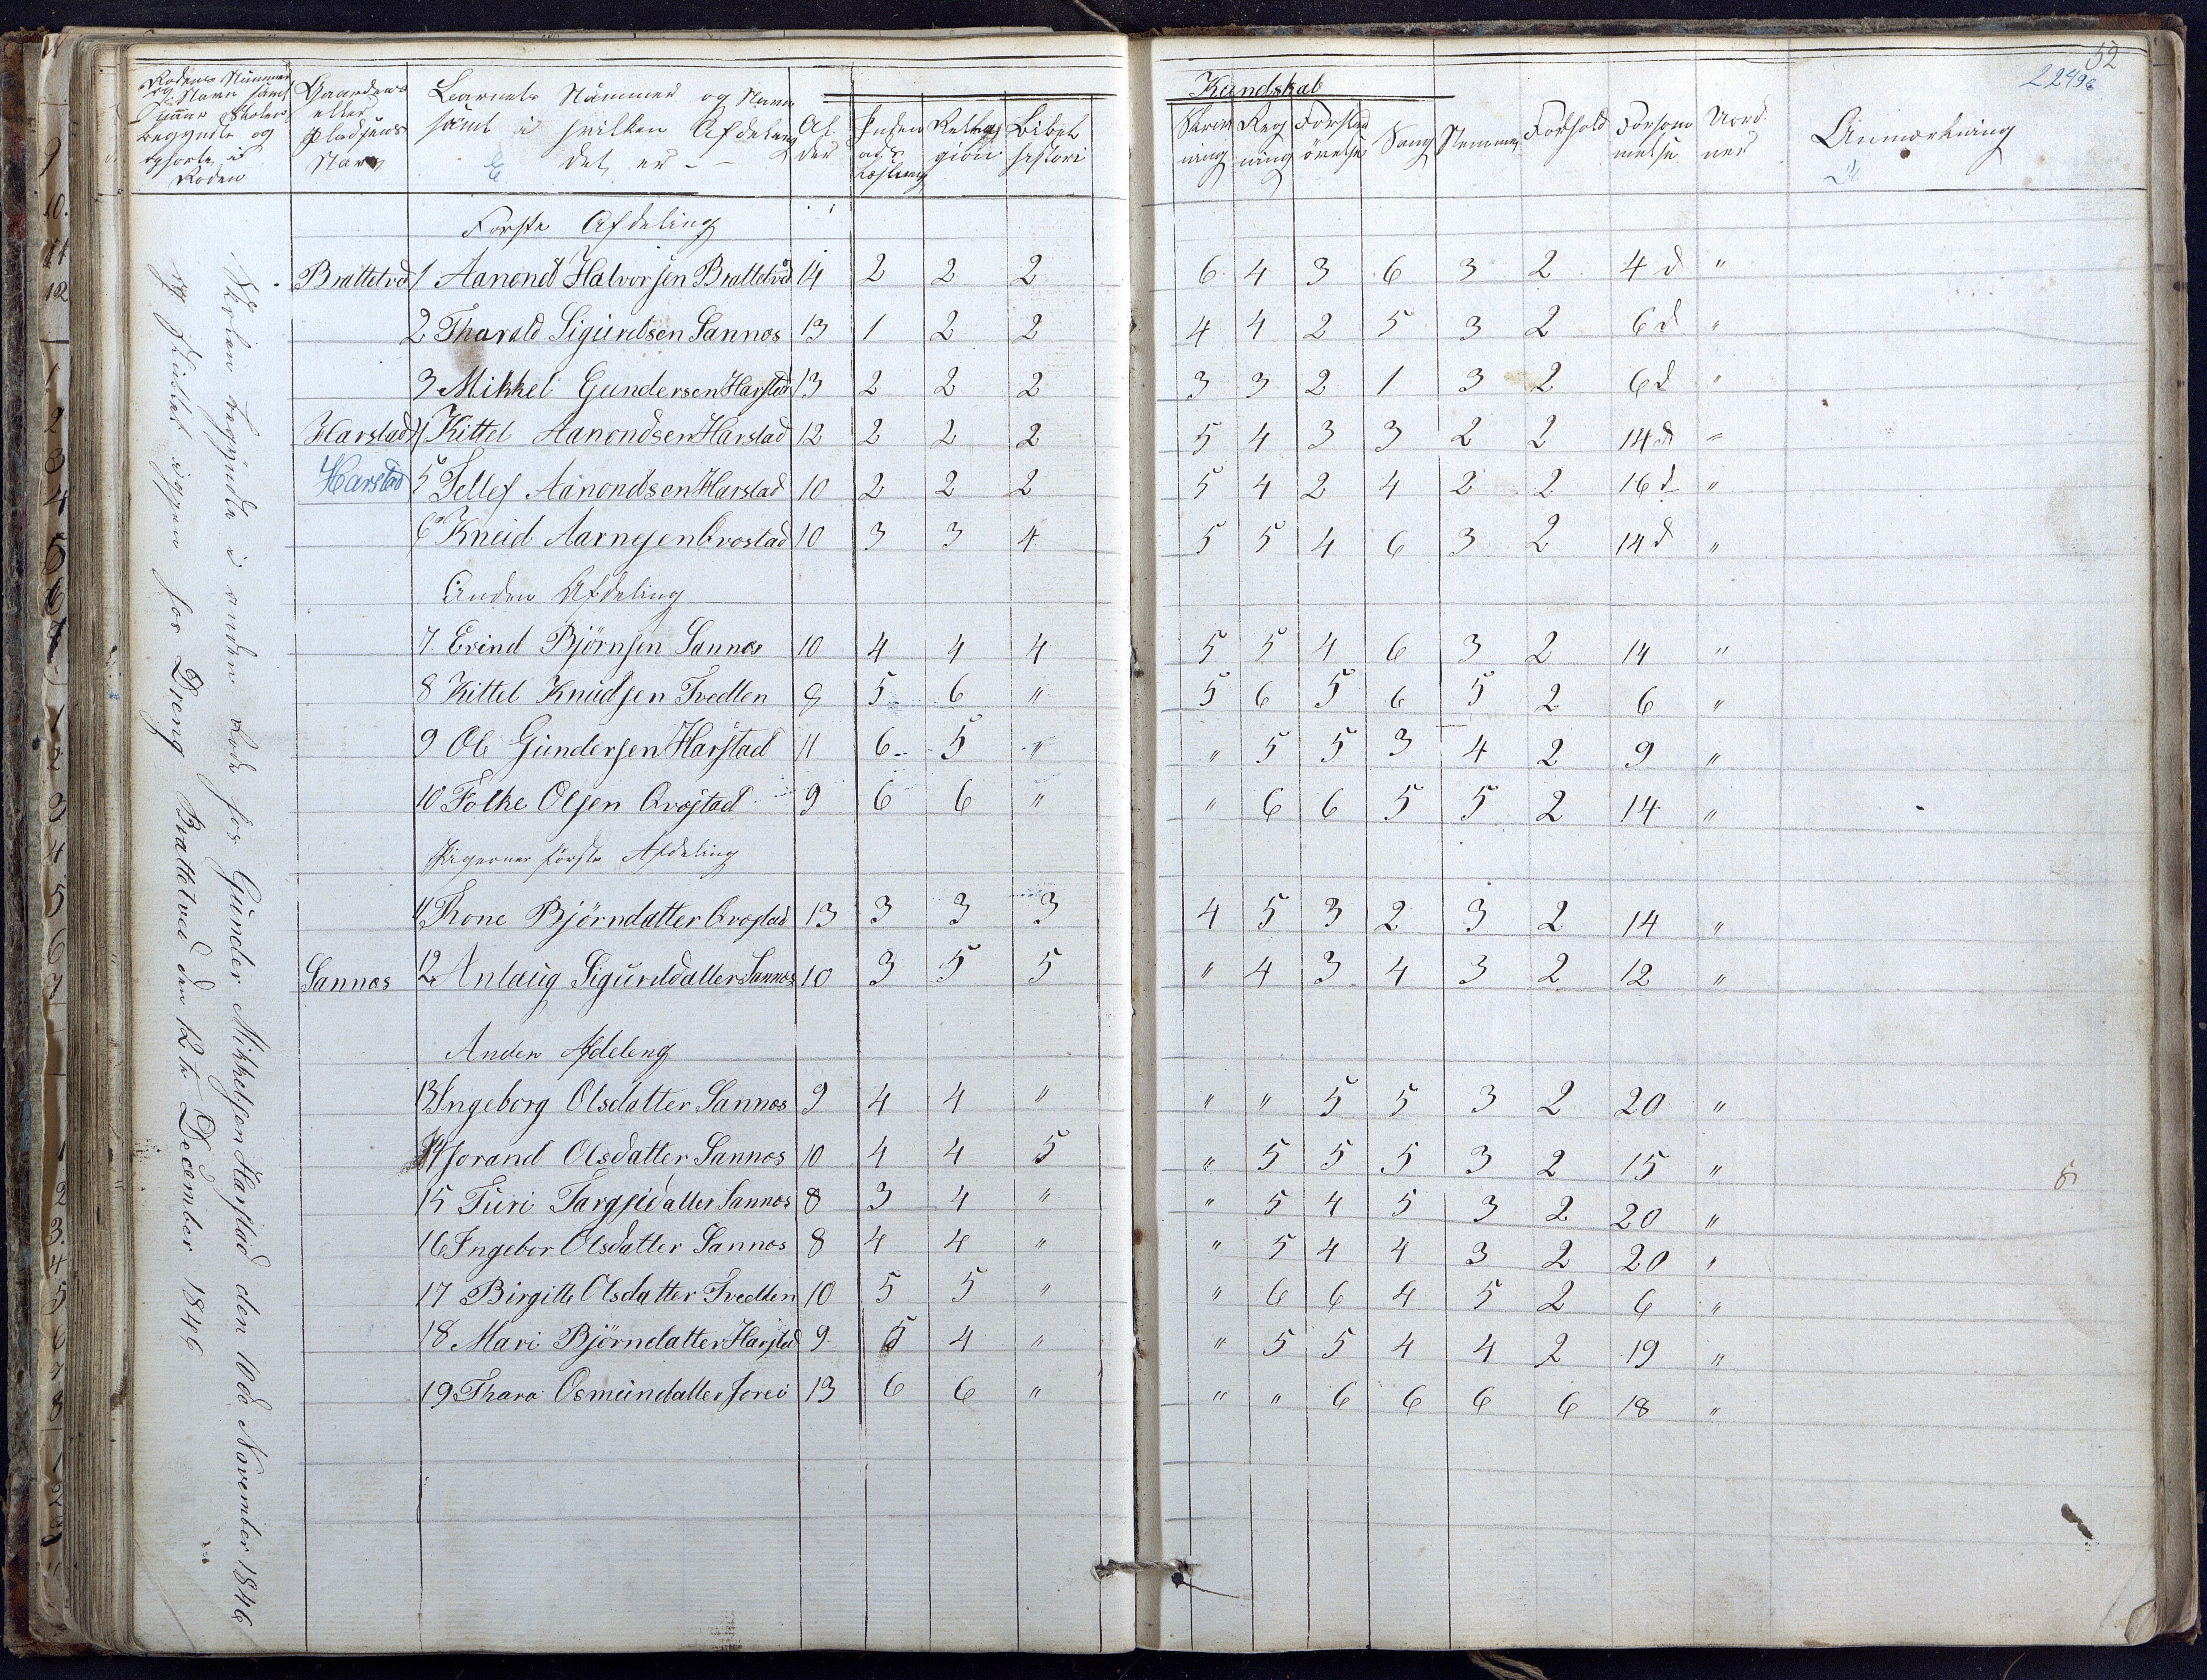 52
22496
Rodens Nummer
og Navn samt
naar Skolen
begyndte og
ophorte i
Roden
Gaardens
eller
Pladsens
Navn
Barnets Nummer og Navn
samt i hvilken Afdeling
det er –
Al
der
Inden
ads
Læsning
Relig
gion
Bibel
histori
Kundskab
Skriv
ning
Reg
ning
Forstands
övelse
Sang
Nemme
Forhold
Forsöm
melse
Uord
ner
Anmærkning
Skolen begyndte i anden Rode hos Gunder Mikkelsen Harstad den 10de November 1846
og sluttet igjen hos Dreng Brattetved den 12te December 1846
Første Afdeling
Brattetved 1 Aanond Halvorsen Brattetved 14 2 2 2 6 4 3 6 3 2 4 d "
2 Tharald Sigurdsen Sannes 13 1 2 2 4 4 2 5 3 2 6 d "
3 Mikkel Gundersen Harstad 13 2 2 2 3 3 2 1 3 2 6 d "
Harstad 4 Kittel Aanondsen Harstad 12 2 2 2 5 4 3 3 2 2 14 d "
Harstad 5 Tellef Aanondsen Harstad 10 2 2 2 5 4 2 4 2 2 16 d "
6 Kneid Aarnesen Qvostad 10 3 3 4 5 5 4 6 3 2 14 d "
Anden Afdeling
7 Evind Björnsen Sannes 10 4 4 4 5 5 4 6 3 2 14 "
8 Kittel Knudsen Tvedten 9 5 6 " 5 6 5 6 5 2 6 "
9 Ole Gundersen Harstad 11 6 5 " " 5 5 3 4 2 9 "
10 Folke Olsen Qvostad 9 6 6 " " 6 6 5 5 2 14 "
Pigernes første Afdeling
11 Thone Björndatter Qvostad 13 3 3 3 4 5 3 2 3 2 14 "
Sannes 12 Anlaug Sigurddatter Sannes 10 3 5 5 " 4 3 4 3 2 12 "
Anden Afdeleng
13 Ingeborg Olsdatter Sannes 9 4 4 " " " 5 5 3 2 20 "
14 Jorand Olsdatter Sannes 10 4 4 5 " 5 5 5 3 2 15 "
15 Turi Targjeidatter Sannes 8 3 4 " " 5 4 5 3 2 20 "
16 Ingebor Olsdatter Sannes 8 4 4 " " 5 4 4 3 2 20 "
17 Birgitte Olsdatter Tvedten 10 5 5 " " 6 6 4 5 2 6 "
18 Mari Björndatter Harstad 9 5 4 " " 5 5 4 4 2 19 "
19 Thara Osmundatter Jorei 13 6 6 " " " 6 6 6 6 18 "